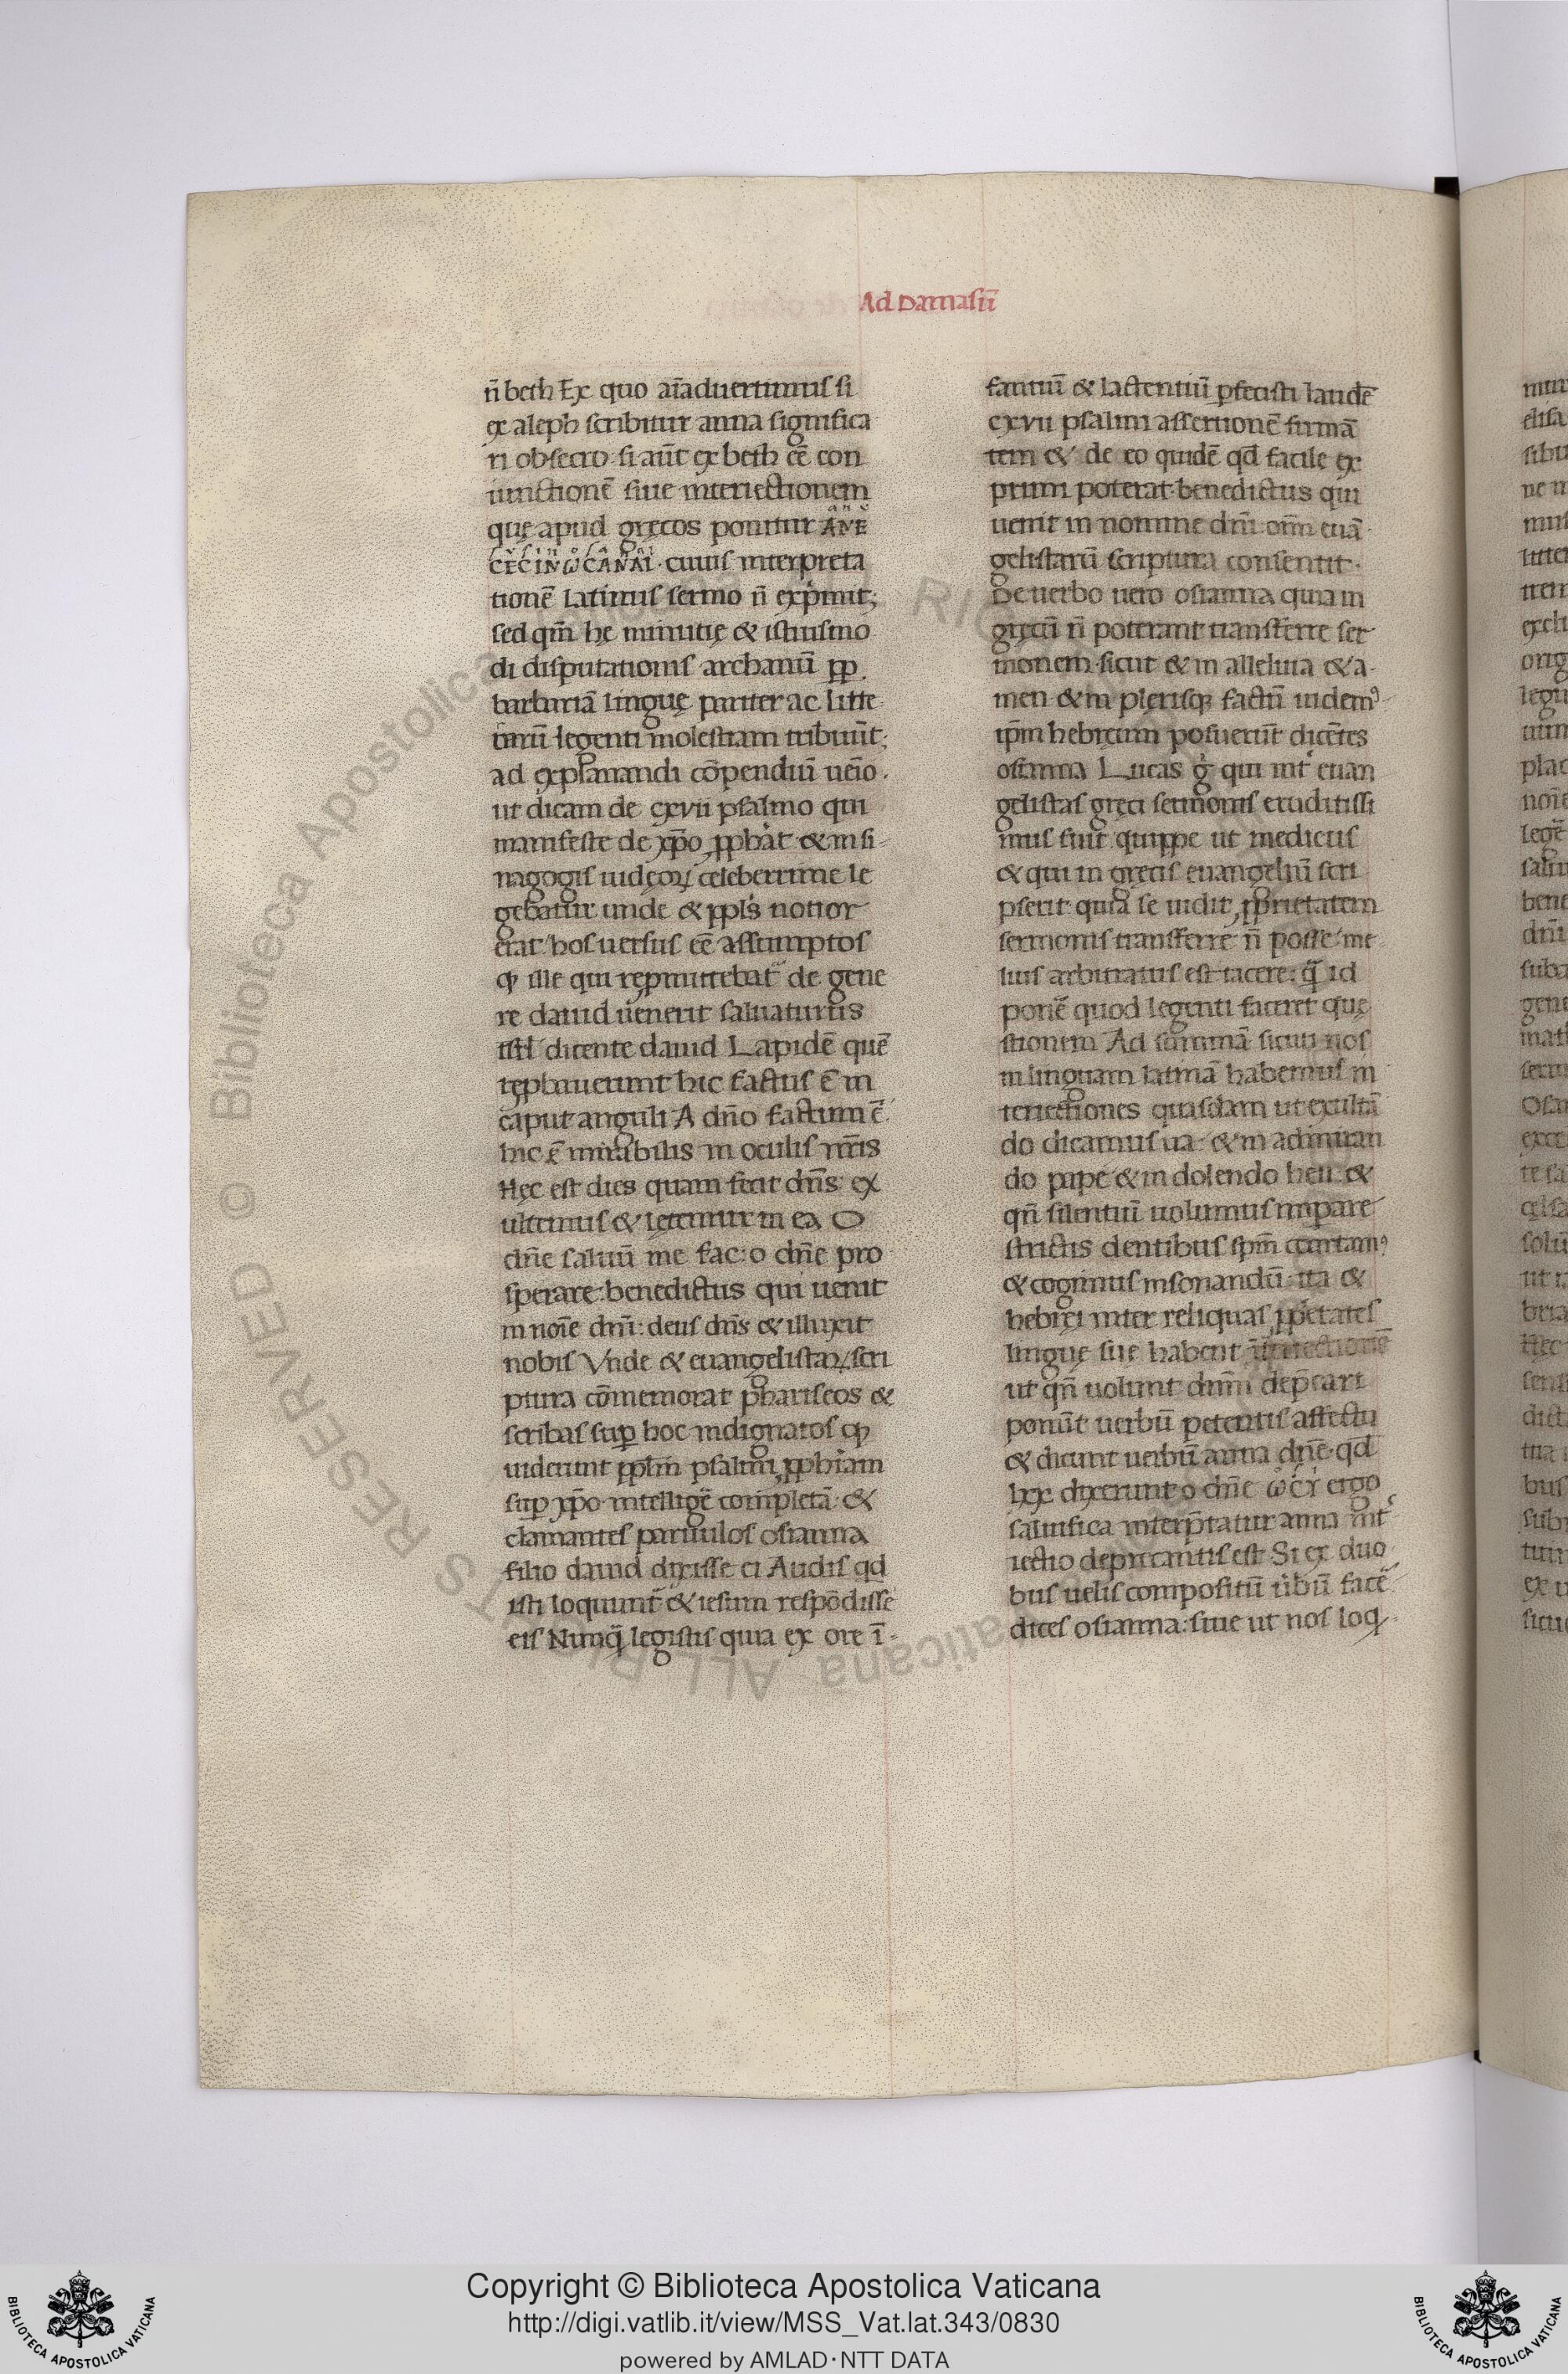 Ad Damasū
n̄ beth Ex quo aīaduertimus si
ex aleph scribitur anna significa
ri obsecro· si aūt ex beth eē con
iunctionē siue interiectionem
quę apud gręcos ponitur ANE
CECINωCANAI· cuius interpreta
tionē latinus sermo n̄ exp̄mit;
sed qm̄ hę minutię & istiusmo
di disputationis archanū pp̄
barbariā linguę pariter ac litte
rarū legenti molestiam tribuūt;
ad explanandi cōpendiū uenio·
ut dicam de cxvii psalmo qui
manifeste de xp̄o ꝓphat & in si
nagogis iudęoꝝ celeberrime le
gebatur unde & ppl̄is notior
erat hos uersus eē assumptos
ꝙ ille qui repmittebat̄ de gene
re dauid uenerit saluaturus
isrl̄ dicente dauid Lapidē quē
reprobauerunt hic factus ē in
caput anguli A dn̄o factum ē
hic ē mirabilis in oculis nr̄is
Hęc est dies quam fecit dn̄s ex
ultemus & letemur in ea O
dn̄e saluū me fac: o dn̄e pro
sperare: benedictus qui uenit
in noīe dn̄i: deus dn̄s & illuxit
nobis Vnde & euangelistaꝝ scri
ptura cōmemorat phariseos &
scribas suꝑ hoc indignatos ꝙ
uiderunt ppl̄m psalmi ꝓphiam
suꝑ xp̄o intelligē completā: &
clamantes paruulos osianna
filio dauid dixisse ei Audis qd̄
isti loquunt̄ & iesum respōdisse
eis Nunq̄ legistis quia ex ore ī
fantiū & lactentiū ꝑfecisti laudē
cxvii psalmi assertionē firmā
tem & de eo quidē qd̄ facile ex
primi poterat· benedictus qui
uenit in nomine dn̄i: om̄i euā
gelistarū scriptura consentit·
De uerbo uero osianna quia in
gręcū n̄ poterant transferre ser
monem sicut & in alleluia & a
men & in plerisq; factū uidemꝰ
ip̄m hebręum posuerūt dicētes
osianna Lucas g̊ qui int̄ euan
gelistas gręci sermonis eruditissi
mus fuit quippe ut medicus
& qui in gręcis euangeliū scri
pserit quia se uidit ꝓprietatem
sermonis transferre n̄ posse me
lius arbitratus est tacere: q̄ id
ponē quod legenti faceret quę
stionem Ad summā sicuti nos
in linguam latinā habemus in
teriectiones quasdam ut exultā
do dicamus ua & in admiran
do pape & in dolendo heu: &
qn̄ silentiū uolumus impare
strictis dentibus spm̄ coartamꝰ
& cogimus insonandū: ita &
hebręi inter reliquas ꝓprietates
linguę suę habent īteriectionē
ut qn̄ uolunt dnm̄ dep̄cari
ponūt uerbū petentis affectu
& dicunt uerbū anna dn̄e· qd̄
lxx dixerunt o dn̄e ωCY ergo
saluifica interp̄tatur anna int̄
iectio deprecantis est Si ex duo
bus uelis compositū ūbū facē
dices osianna: siue ut nos loq
Copyright © Biblioteca Apostolica Vaticana
http://digi.vatlib.it/view/MSS_Vat.lat.343/0830
powered by AMLAD·NTT DATA